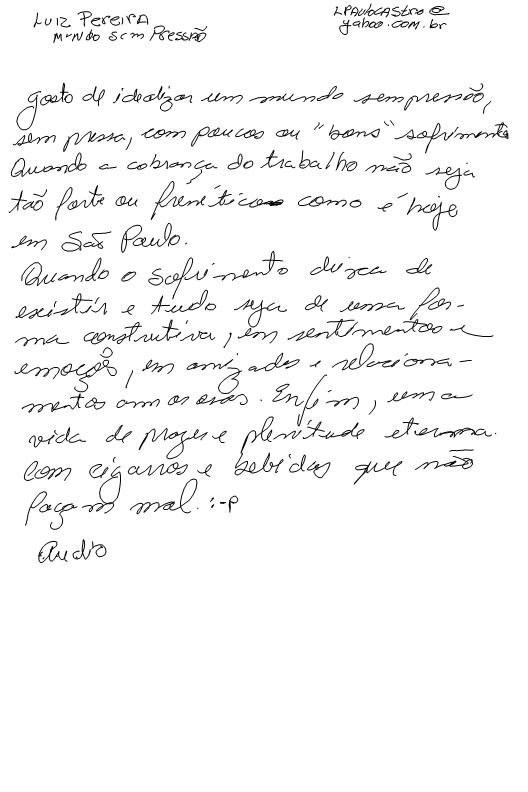 Luiz Pereira
Mundo sem Pressão
LPAulocAstro@
yahoo.com.br
gosto de idealizar um mundo sem pressão,
sem pressa, com poucos ou "bons" sofrimento
Quando a cobrança do trabalho não seja
tão forte ou frenético como é hoje
em São Paulo.
Quando o sofrimento deixa de
existir e tudo seja de uma for-
ma construtiva, em sentimentos e
emoções, em amizades e relaciona-
mentos amorosos. Enfim, uma
vida de prazer e plenitude eterna.
com cigarros e bebidas que não
façam mal. :-P